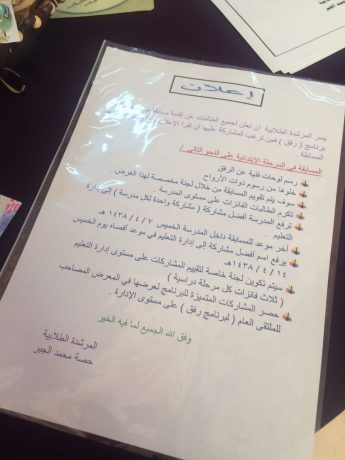 إعلان
يسر المرشدة الطلابية أن تعلن لجميع الطالبات عن إقامة مسابقة
برنامج ( رفق ) فمن ترغب المشاركة عليها أن تقرأ الإعلان
المسابقة .
المسابقة في المرحلة الابتدائية على النحو التالي /
رسم لوحات فنية عن الرفق
خلوها من رسوم ذوات الأرواح
سوف يتم تقويم المسابقة من خلال لجنة مخصصة لهذا الغرض .
تكرم الطالبات الفائزات على مستوى المدرسة .
ترفع المدرسة أفضل مشاركة ( مشاركة واحدة لكل مدرسة ) إلى إدارة
التعليم .
آخر موعد للمسابقة داخل المدرسة الخميس ٧ / ٤ / ١٤٣٨هـ
يرفع اسم أفضل مشاركة إلى إدارة التعليم في موعد أقصاه يوم الخميس
١٤ / ٤ / ١٤٣٨هـ
سيتم تكوين لجنة خاصة لتقييم المشاركات على مستوى إدارة التعليم
( ثلاث فائزات كل مرحلة دراسية )
حصر المشاركات المتميزة للبرنامج لعرضها في المعرض المصاحب
للملتقى العام ( لبرنامج رفق ) على مستوى الإدارة .
وفق الله الجميع لما فيه الخير
المرشدة الطلابية
حصة محمد الجبر